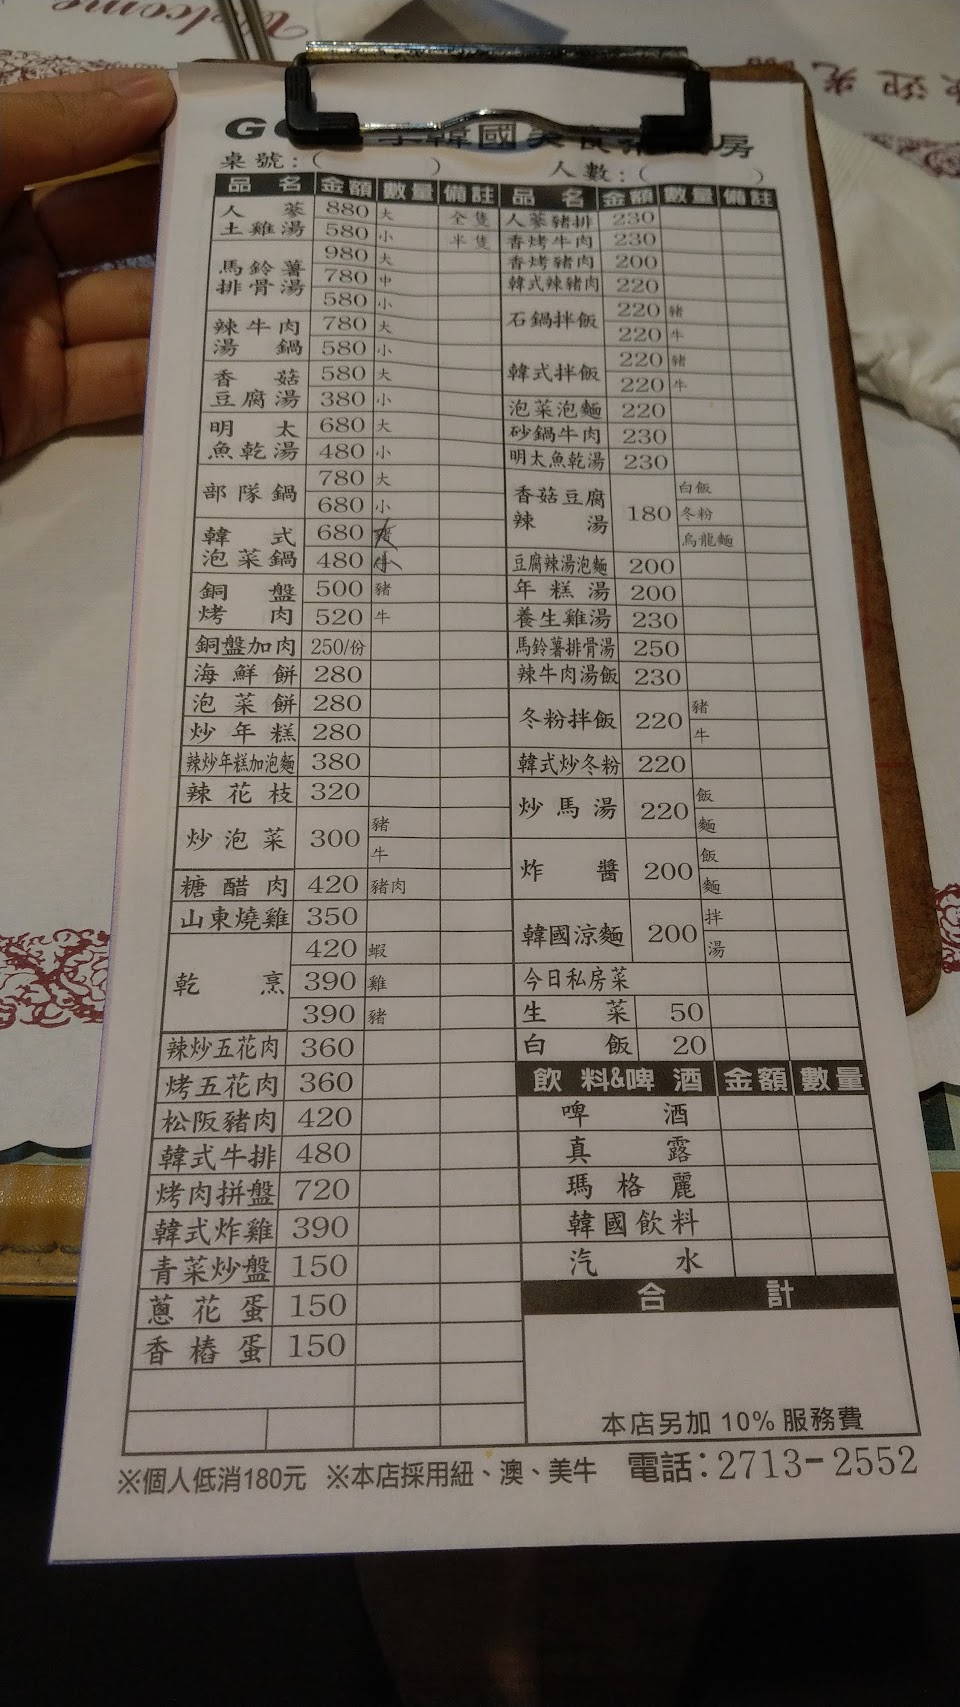 Welcome
歡迎光臨
G
李韓國美食
房
桌號:( )
人數:( )
品名 金額 數量 備註
人蔘土雞湯 880 大 全隻
580 小 半隻
馬鈴薯排骨湯 980 大
780 中
580 小
辣牛肉湯鍋 780 大
580 小
香菇豆腐湯 580 大
380 小
明太魚乾湯 680 大
480 小
部隊鍋 780 大
680 小
韓式泡菜鍋 680
480 小
銅盤烤肉 500 豬
520 牛
銅盤加肉 250/份
海鮮餅 280
泡菜餅 280
炒年糕 280
辣炒年糕加泡麵 380
辣花枝 320
炒泡菜 300 豬
牛
糖醋肉 420 豬肉
山東燒雞 350
乾烹 420 蝦
390 雞
390 豬
辣炒五花肉 360
烤五花肉 360
松阪豬肉 420
韓式牛排 480
烤肉拼盤 720
韓式炸雞 390
青菜炒盤 150
蔥花蛋 150
香樁蛋 150
品名 金額 數量 備註
人蔘豬排 230
香烤牛肉 230
香烤豬肉 200
韓式辣豬肉 220
石鍋拌飯 220 豬
220 牛
韓式拌飯 220 豬
220 牛
泡菜泡麵 220
砂鍋牛肉 230
明太魚乾湯 230
香菇豆腐辣湯 180 白飯
冬粉
烏龍麵
豆腐辣湯泡麵 200
年糕湯 200
養生雞湯 230
馬鈴薯排骨湯 250
辣牛肉湯飯 230
冬粉拌飯 220 豬
牛
韓式炒冬粉 220
炒馬湯 220 飯
麵
炸醬 200 飯
麵
韓國涼麵 200 拌
湯
今日私房菜
生菜 50
白飯 20
飲料&啤酒 金額 數量
啤酒
真露
瑪格麗
韓國飲料
汽水
合計
本店另加 10% 服務費
※個人低消180元 ※本店採用紐、澳、美牛 電話:2713-2552